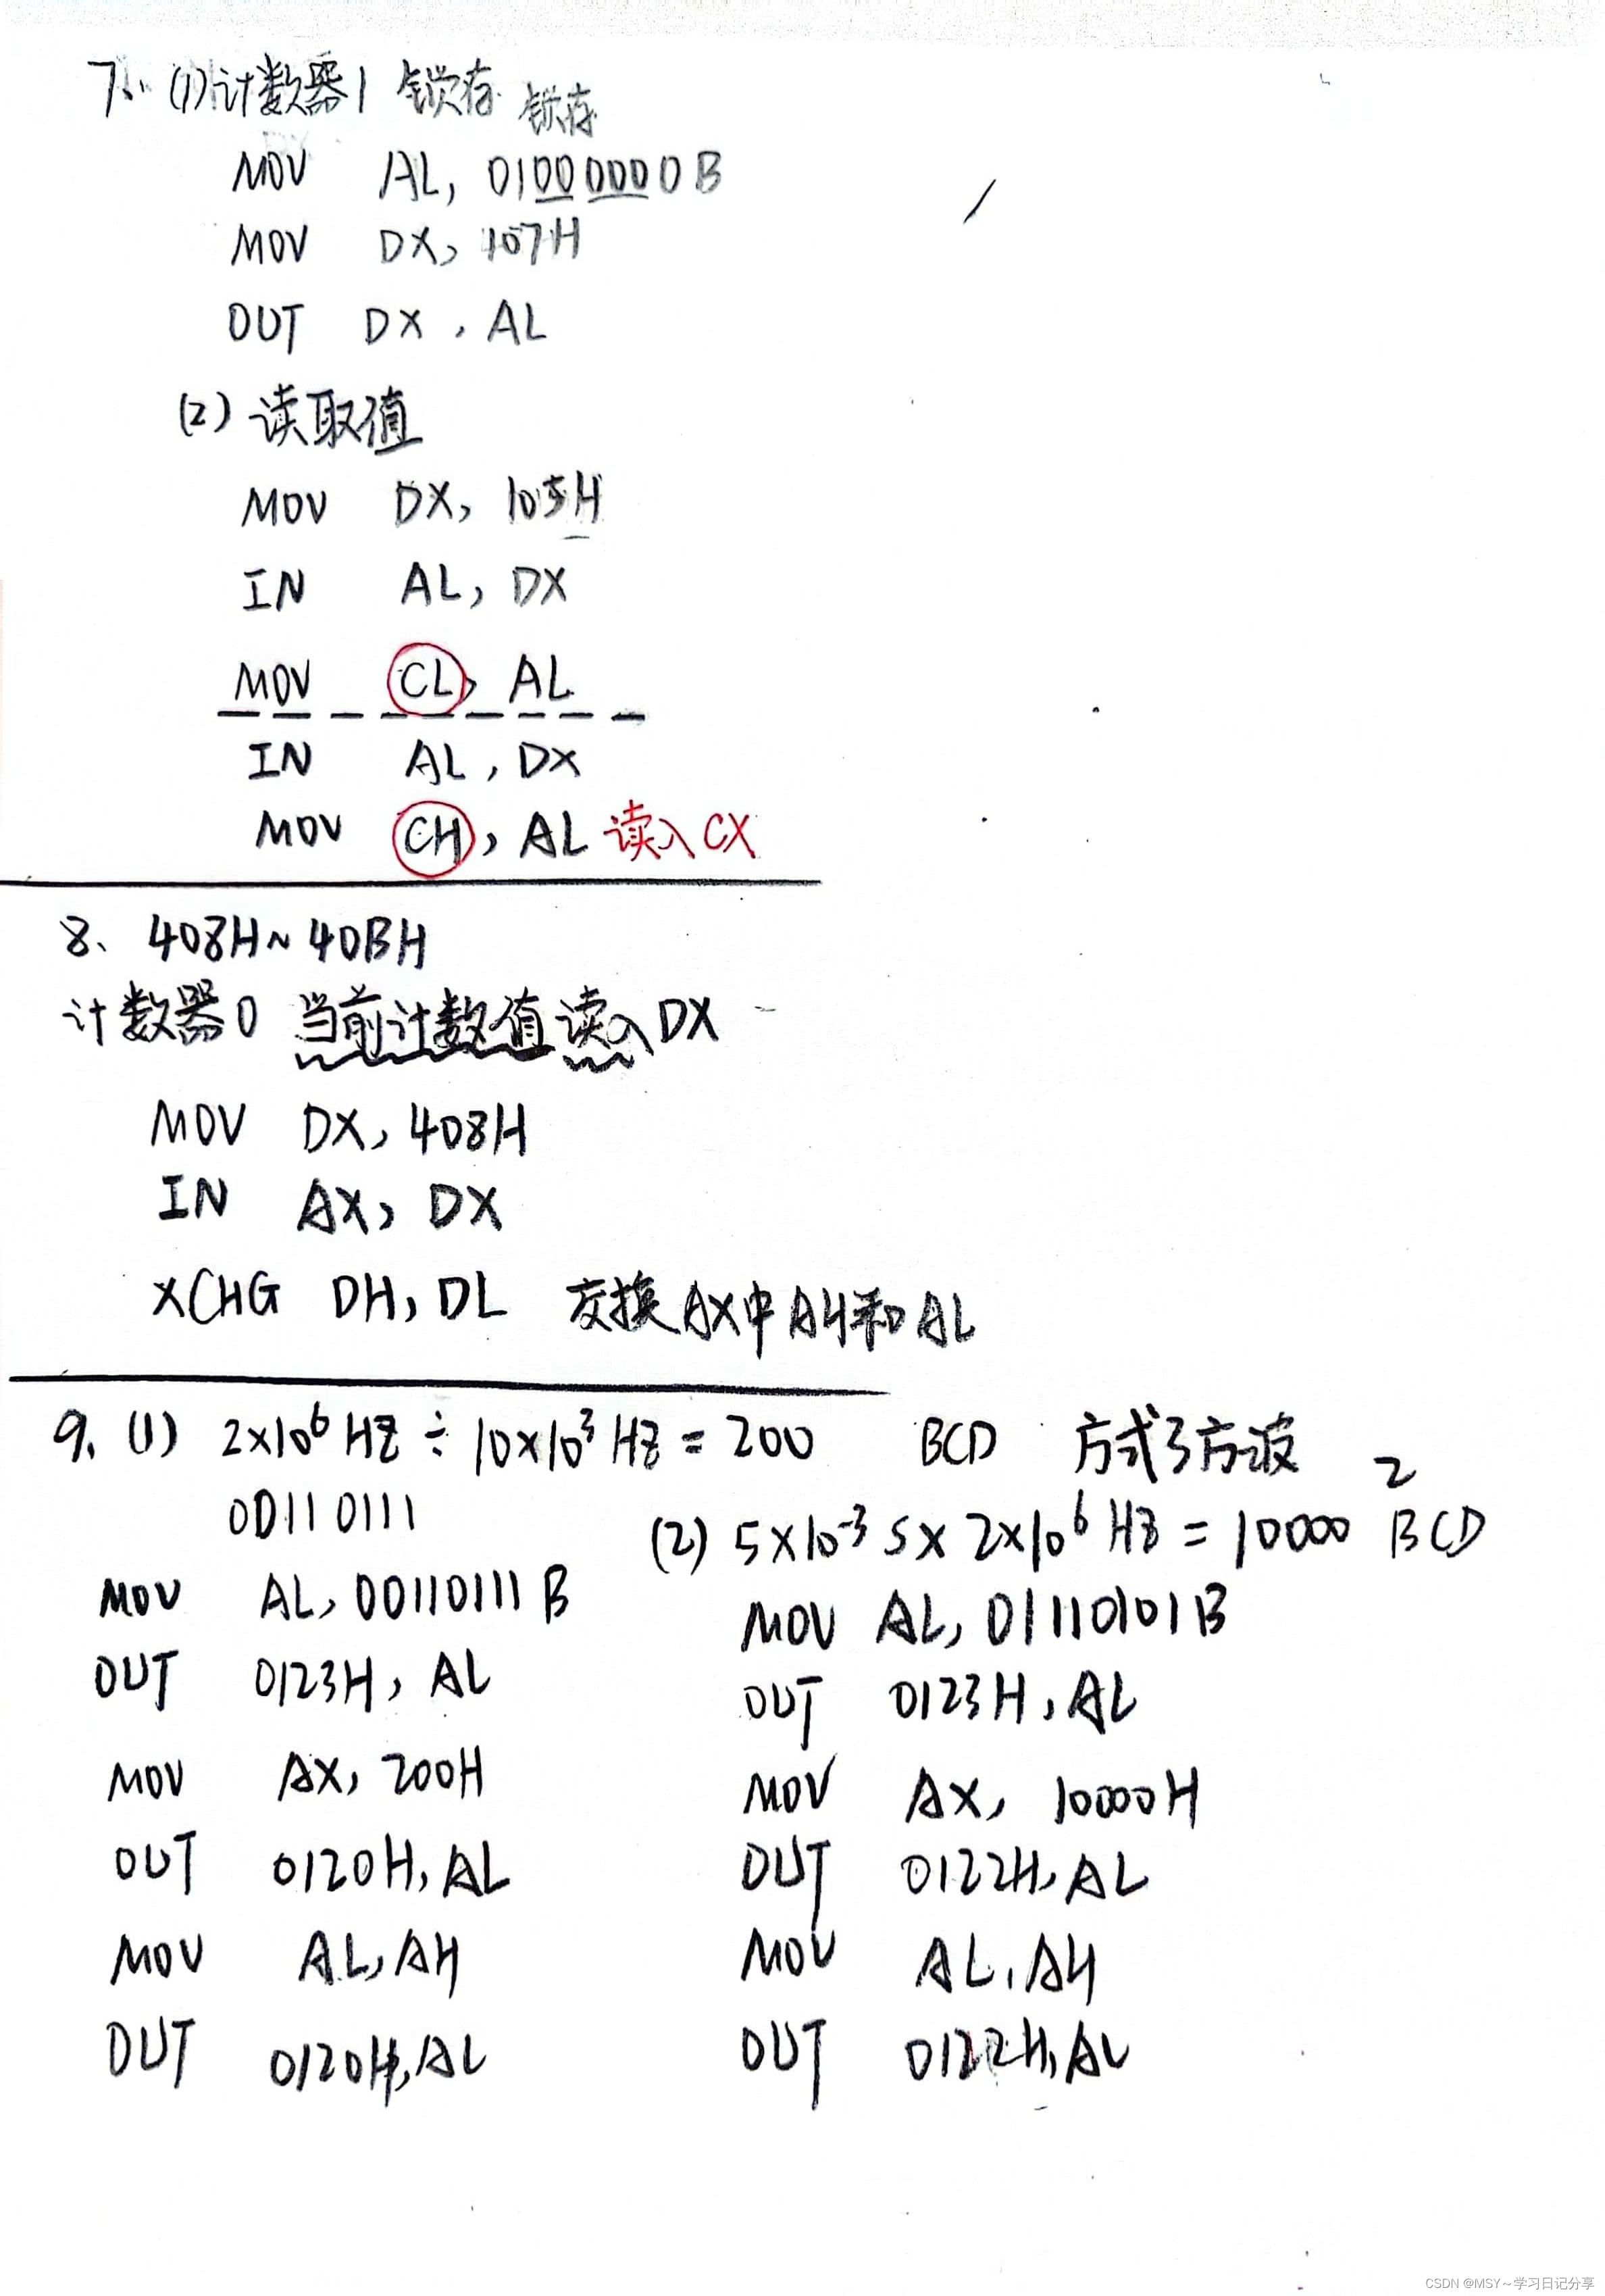 7、(1)计数器1 锁存 锁存
MOV AL, 01000000B
MOV DX, 107H
OUT DX, AL
(2) 读取值
MOV DX, 105H
IN AL, DX
MOV CL, AL
IN AL, DX
MOV CH, AL 读入CX
8、408H~40BH
计数器0 当前计数值读入DX
MOV DX, 408H
IN AX, DX
XCHG DH, DL 交换AX中AH和AL
9、(1) 2×10⁶HZ ÷ 10×10³HZ = 200 BCD 方式3方波
00110111
MOV AL, 00110111B
OUT 0123H, AL
MOV AX, 200H
OUT 0120H, AL
MOV AL, AH
OUT 0120H, AL
2
(2) 5×10⁻³S×2×10⁶HZ = 10000 BCD
MOV AL, 01110101B
OUT 0123H, AL
MOV AX, 10000H
OUT 0122H, AL
MOV AL, AH
OUT 0122H, AL
CSDN @MSY~学习日记分享